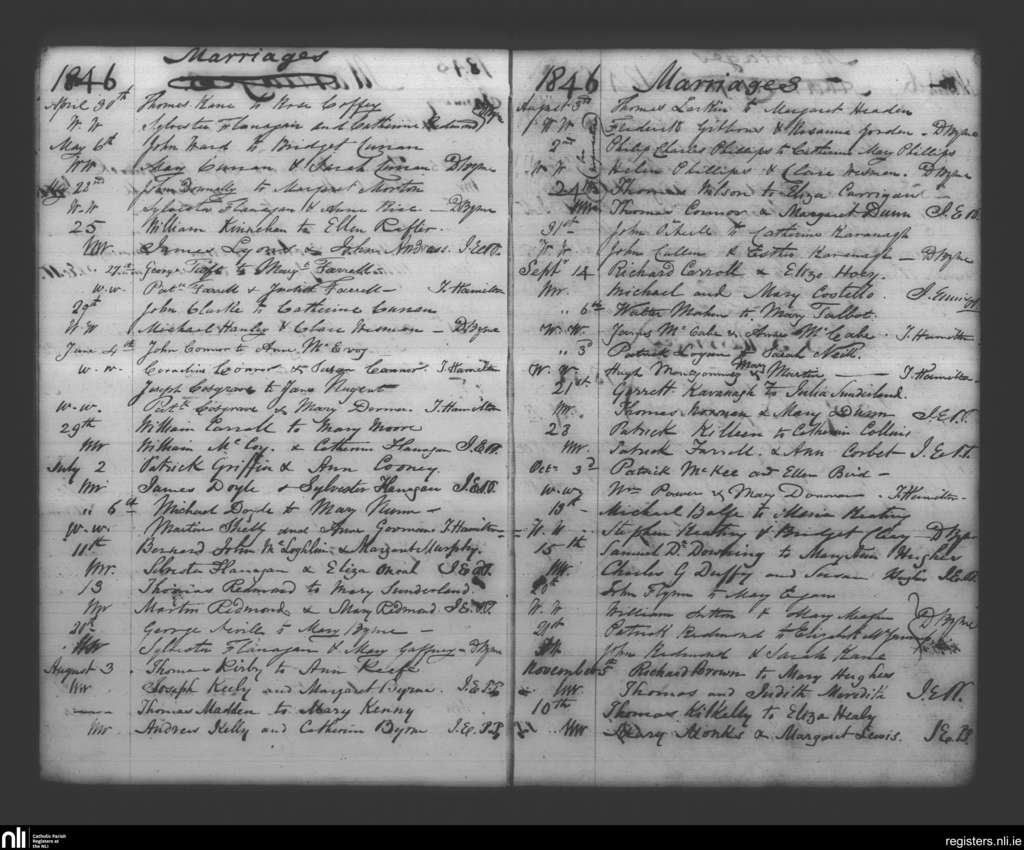 1846 Marriages
April 30th Thomas Kane to Rose Coffey
W.W Sylvester Flanagan and Catherine Redmond
May 6th John Ward to Bridget Curran
WW Mary Curran & Sarah Curran D Byrne
May 22nd John Donnelly to Margaret Morton
W.W Sylvester Flanagan & Anne D Byrne
25 William Kinnehan to Ellen
Wr. James Lyons & John Andrews. J.E.
27th George Taaffe to Mary Farrell
w.w. Patk Farrell & Farrell T. Hamilton
29th John Clarke to Catherine Curran
W.W Michael Hanley & Clare Wesman D Byrne
June 4th John Connor to Anne McEvoy
w.w. Cornelius Connor & Susan Connor T. Hamilton
Joseph Cosgrave to Jane Nugent
w.w. Patk Cosgrave & Mary Dorman T. Hamilton
29th William Carroll to Mary Moore
Wr William McCoy & Catherine Flanagan J.E.
July 2 Patrick Griffin & Ann Cooney
Wr James Doyle & Sylvester Flanagan J.E.
" 6th Michael Doyle to Mary Nunn
w.w. Martin Shelly and Anne Gorman T. Hamilton
11th Bernard John McLoghlin & Margaret Murphy.
Wr. Silvester Flanagan & Eliza J.E.
13 Thomas Redmond to Mary Sunderland
Wr Martin Redmond & Mary Redmond J.E.
20th George Nevills to Mary Byrne
WW Sylvester Flanagan & Mary Gaffney D Byrne
August 3 Thomas Kirby to Ann Keefe
Wr Joseph Keely and Margaret Byrne J.E.
Thomas Madden to Mary Kenny
Wr Andrew Kelly and Catherine Byrne J.E.
1846 Marriages
August 3rd Thomas Larkin to Margaret Headen
WW Frederick Gibbons & Rosanna Gordon D Byrne
2nd Philip Charles Phillips to Catherine Mary Phillips
W.W Helen Phillips & Clare Wesman. D Byrne
24th Thomas Wilson to Eliza Carrigan
Wr Thomas Connor & Margaret Dunn J.E.
31st John O'Neill to Catherine Kavanagh
W.W John Cullen & Esther Kavanagh D Byrne
Septr 14 Richard Carroll & Eliza Hoey.
Wr. Michael and Mary Costello.
" 6th Walter Meehan to Mary Talbot
W.W. James McCabe & Anne McCabe T. Hamilton
" 3rd Patrick Logan to Sarah Neill.
W.W. Hugh Montgomery & Mary Martin T. Hamilton
21st Garrett Kavanagh to Julia Sunderland.
Wr. Thomas & Mary Dixon J.E.
23 Patrick Killeen to Catherine Collins
Wr Patrick Farrell & Ann Corbet J.E.
Octr 3rd Patrick McKee and Ellen Bird
w.w Wm Power & Mary Donovan T. Hamilton
13th Michael Balfe to Maria Keating
W.W Stephen Keating & Bridget Clery D Byrne
15th Samuel D. Downing to Mary Ann Hughes
Wr. Charles G Duffy and Susan Hughes J.E.
20th John Flynn to Mary
W.W William Sutton & Mary Meagher D Byrne
21st Patrick Redmond to Elizabeth
WW John Redmond & Sarah Kane
November 5th Richard Brown to Mary Hughes
Wr. Thomas and Judith Meredith J.E.
10th Thomas Kilkelly to Eliza Healy
Wr Henry Monks & Margaret Lewis. J.E.
nli Catholic Parish Registers at the NLI
registers.nli.ie